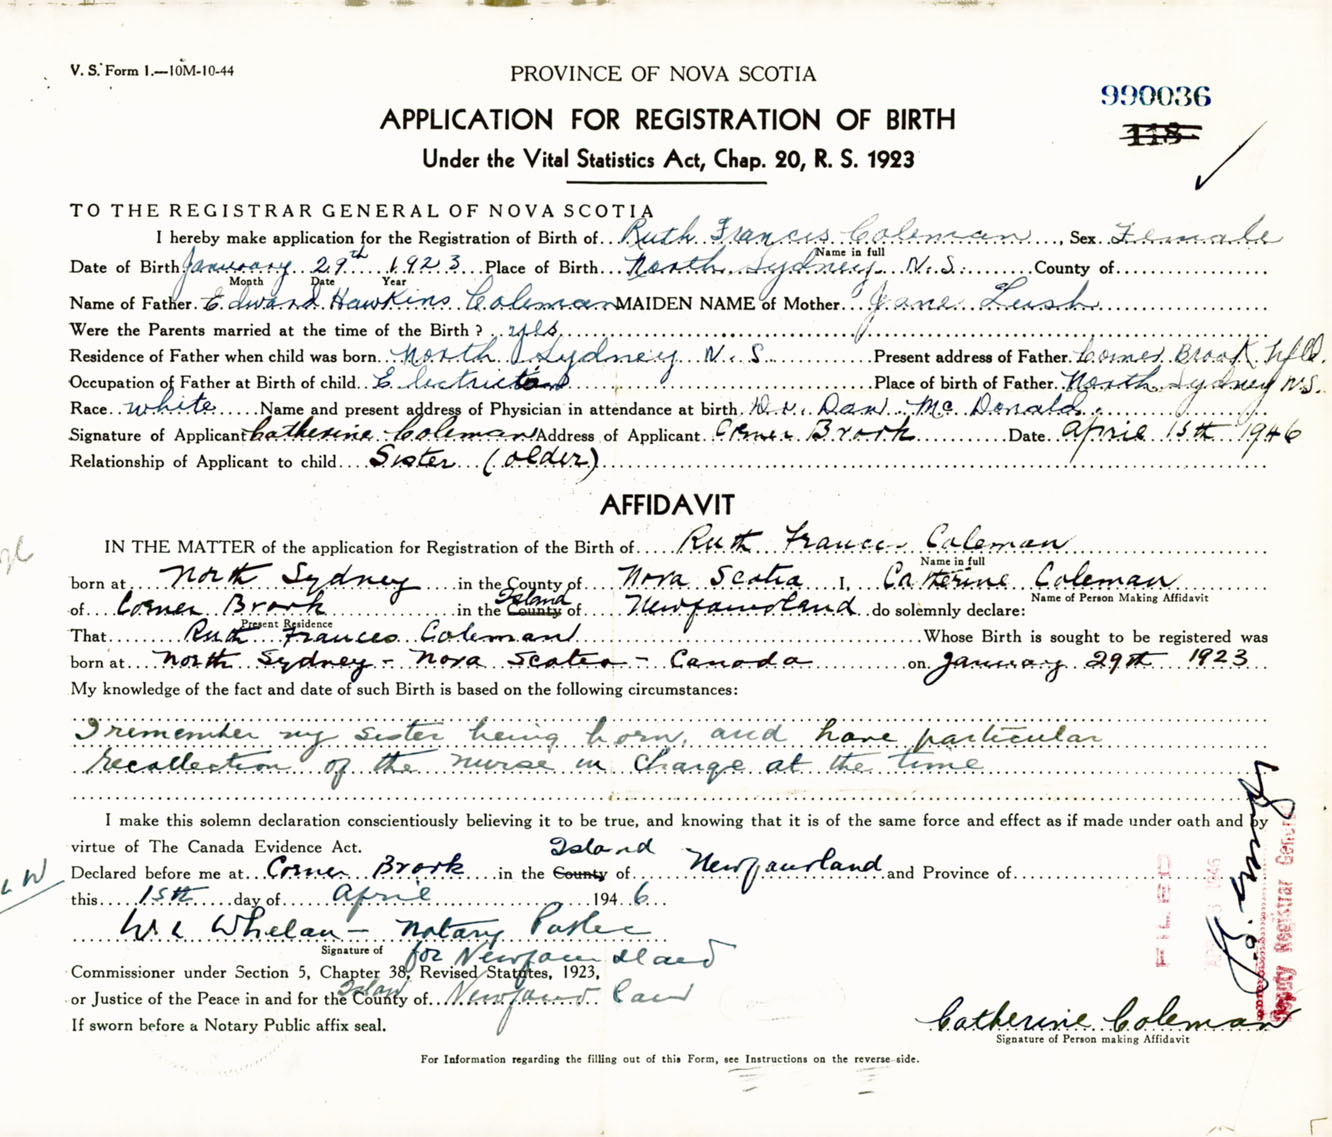 V. S. Form 1.—10M-10-44
PROVINCE OF NOVA SCOTIA
990036
118
APPLICATION FOR REGISTRATION OF BIRTH
Under the Vital Statistics Act, Chap. 20, R. S. 1923
TO THE REGISTRAR GENERAL OF NOVA SCOTIA
I hereby make application for the Registration of Birth of Ruth Francis Coleman, Sex Female
Name in full
Date of Birth January 29th 1923 Place of Birth North Sydney N.S. County of
Month Date Year
Name of Father Edward Hawkins Coleman MAIDEN NAME of Mother Jane Lush
Were the Parents married at the time of the Birth? yes
Residence of Father when child was born North Sydney N.S. Present address of Father Corner Brook Nfld.
Occupation of Father at Birth of child Electrician Place of birth of Father North Sydney N.S.
Race white Name and present address of Physician in attendance at birth Dr. Dan McDonald.
Signature of Applicant Catherine Coleman Address of Applicant Corner Brook Date April 15th 1946
Relationship of Applicant to child Sister (older)
AFFIDAVIT
IN THE MATTER of the application for Registration of the Birth of Ruth Francis Coleman
Name in full
born at North Sydney in the County of Nova Scotia I, Catherine Coleman
Name of Person Making Affidavit
of Corner Brook in the County Island of Newfoundland do solemnly declare:
Present Residence
That Ruth Frances Coleman Whose Birth is sought to be registered was
born at North Sydney - Nova Scotia - Canada on January 29th 1923
My knowledge of the fact and date of such Birth is based on the following circumstances:
I remember my sister being born, and have particular
recollection of the nurse in charge at the time
I make this solemn declaration conscientiously believing it to be true, and knowing that it is of the same force and effect as if made under oath and by
virtue of The Canada Evidence Act.
Declared before me at Corner Brook in the County Island of Newfoundland and Province of
this 15th day of April 1946
Whelan - Notary Public
Signature of for Newfoundland
Commissioner under Section 5, Chapter 38, Revised Statutes, 1923,
or Justice of the Peace in and for the County Island of Newfoundland
If sworn before a Notary Public affix seal.
Catherine Coleman
Signature of Person making Affidavit
For Information regarding the filling out of this Form, see Instructions on the reverse side.
FILED
Deputy Registrar General